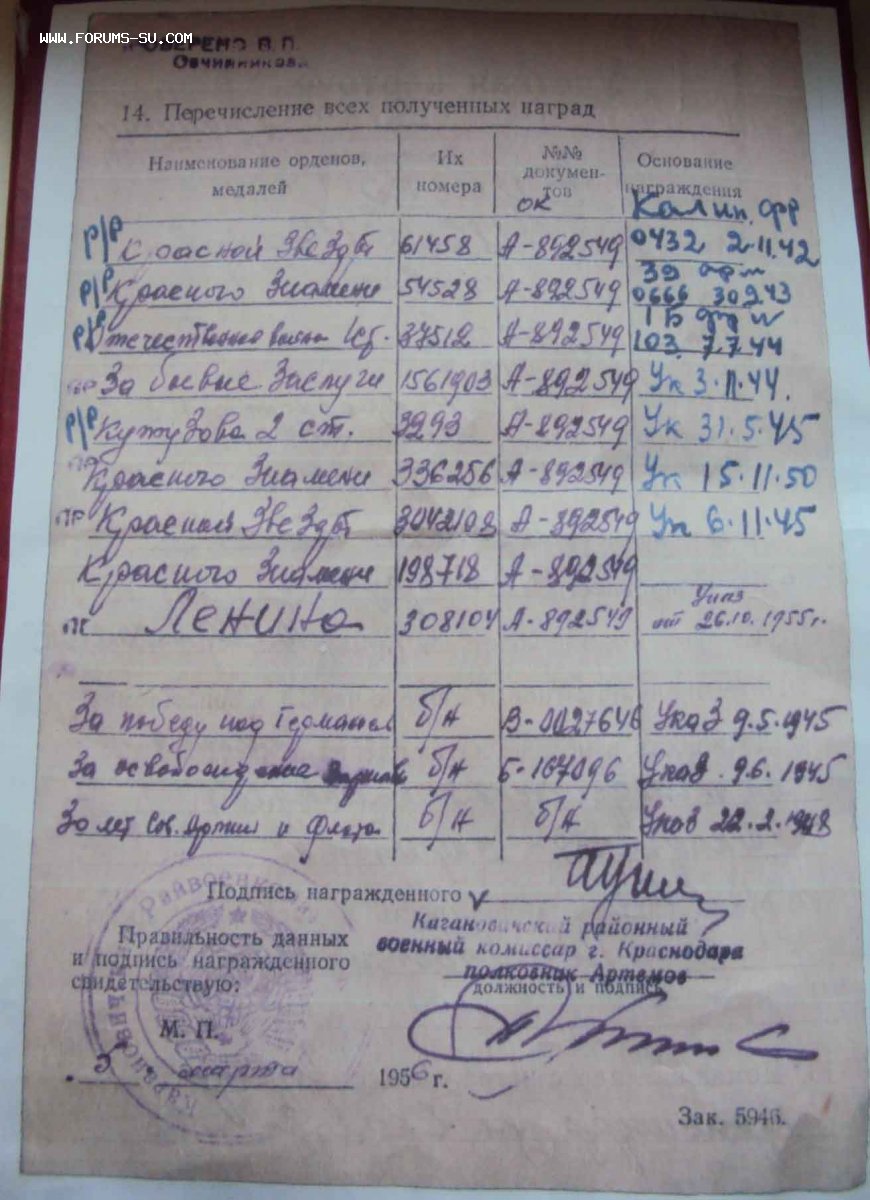 www.forums-su.com
ПРОВЕРЕНО В.П.
Овчинникова.
14. Перечисление всех полученных наград
Наименование орденов, медалей | Их номера | №№ документов | Основание награждения
ок Калин. фр
р/р Красной Звезды 61458 А-892549 0432 2.11.42
39 арм
р/р Красного Знамени 54528 А-892549 0666 30.243
р/р Отечественной войны 1ст. 37512 А-892549 103 7.7.44
За боевые Заслуги 1561903 А-892549 Ук 3.11.44.
р/р Кутузова 2 ст. 3293 А-892549 Ук 31.5.45
Красного Знамени 336256 А-892549 Ук 15.11.50
пр Красной Звезды 3042108 А-892549 Ук 6.11.45
Красного Знамени 198718 А-892549
Указ
Ленина 308104 А-892549 от 26.10.1955г.
За победу над Германией б/н В-0027646 Указ 9.5.1945
За освобождение Варшавы б/н Б-167096 Указ 9.6.1945
30 лет Сов. Армии и Флота б/н б/н Указ 22.2.1948
Подпись награжденного
Кагановичский районный
военный комиссар г. Краснодара
полковник Артемов
должность и подпись
Правильность данных
и подпись награжденного
свидетельствую:
М. П.
5 марта 1956 г.
Зак. 5946.